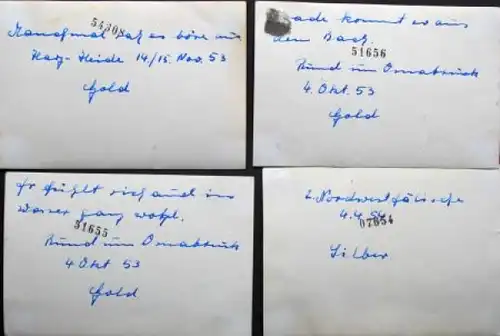 Manchmal sah es böse aus
Harz-Heide 14/15. Nov. 53
Gold
kommt er aus
dem Bach.
51656
Rund um Osnabrück
4. Okt. 53
Gold
Er fühlt sich auch im
Wasser ganz wohl.
51655
Rund um Osnabrück
4 Okt 53
Gold
2. Nordwestfälische
4.4.54
07654
Silber